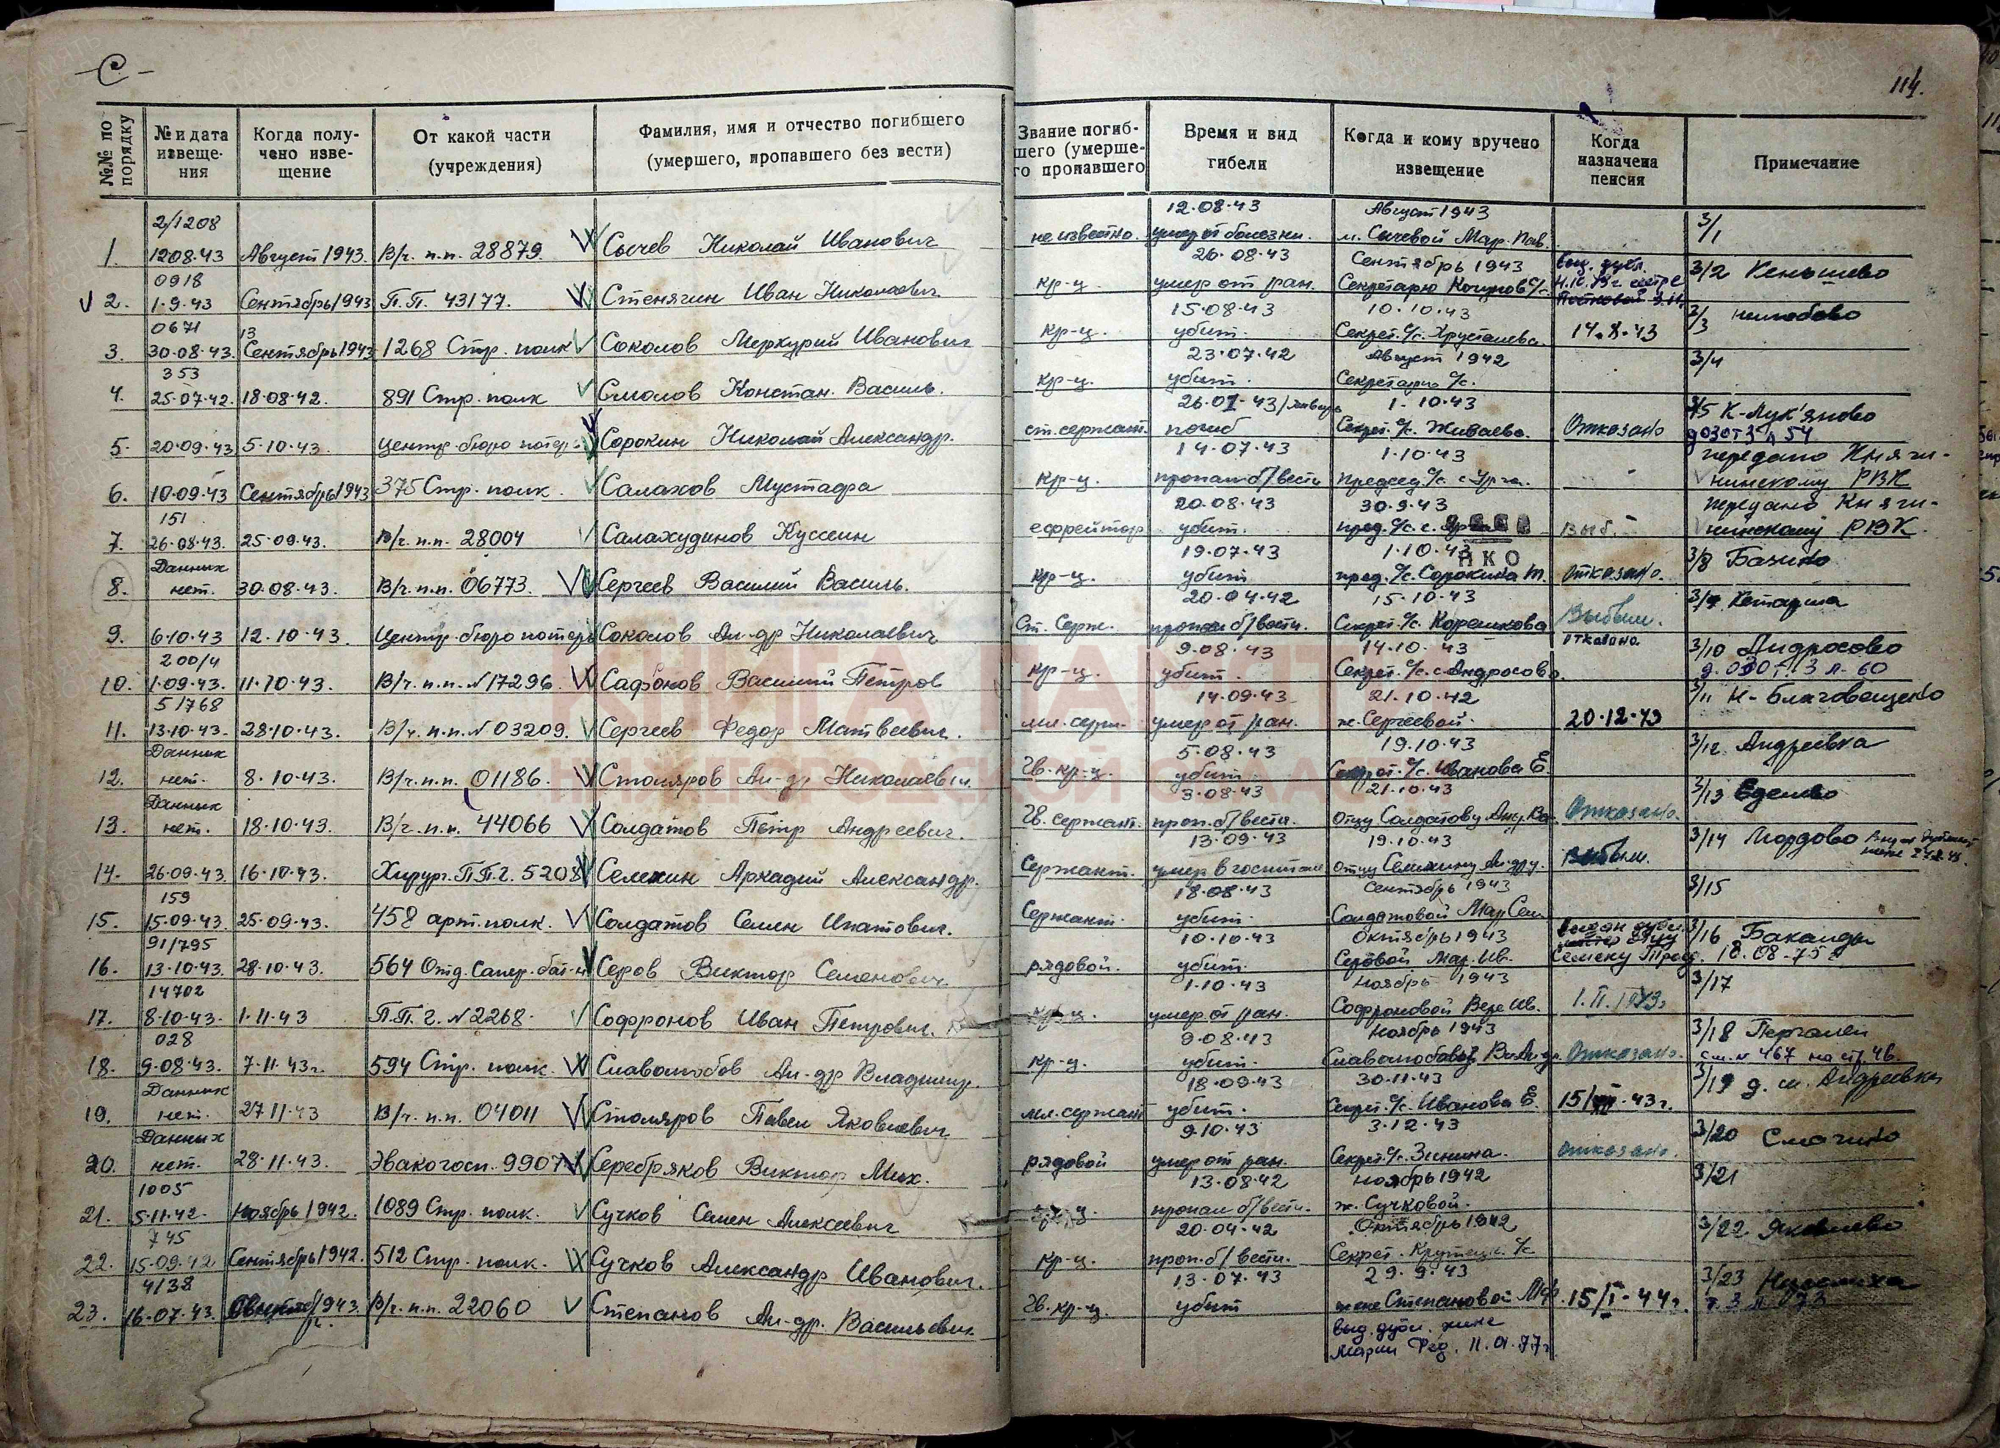 С
114.
№№ по порядку
№ и дата извеще-ния
Когда полу-чено изве-щение
От какой части (учреждения)
Фамилия, имя и отчество погибшего (умершего, пропавшего без вести)
Звание погиб-шего (умерше-го пропавшего
Время и вид гибели
Когда и кому вручено извещение
Когда назначена пенсия
Примечание
2/1208 12.08.43
1. 12 08.43 Август 1943. В/ч. п.п. 28879 Сычев Николай Иванович не известно. умер от болезни. Август 1943 м. Сычевой Мар. Пав. 3/1
0918 26.08.43 Сентябрь 1943
2. 1.9.43 Сентябрь 1943 П.П. 43177. Стенягин Иван Николаевич кр-ц. умер от ран. Секретарю 3/2 Кеньшево
0671 15.08.43 10.10.43
3. 30.08.43. 13 Сентябрь 1943 1268 Стр. полк Соколов Меркурий Иванович кр-ц. убит. Секрет. с/с. Хрусталева. 14.8.43 3/3
353 23.07.42 Август 1942
4. 25.07.42. 18.08.42. 891 Стр. полк Смолов Констан. Василь. кр-ц. убит. Секретарю с/с. 3/4
26.01.43/январь 1.10.43
5. 20.09.43 5.10.43 Центр. бюро потерь Сорокин Николай Александр. ст. сержант. погиб Секрет. с/с. Живаево. Отказано 3/5 К-Лук'яново
14.07.43 1.10.43 передано Княги-
6. 10.09.43 Сентябрь 1943 375 Стр. полк. Салахов Мустафа кр-ц. пропал б/вести Председ. с/с с. Урга. нинскому РВК
151 20.08.43 30.9.43 передано Княги-
7. 26.08.43. 25.09.43. В/ч. п.п. 28004 Салахудинов Хуссеин ефрейтор убит. пред. с/с. с. Выб. нинскому РВК.
НКО
Данных 19.07.43 1.10.43
8. нет. 30.08.43. В/ч. п.п. 06773. Сергеев Василий Василь. кр-ц. убит пред. с/с. Сорокина Т. отказано. 3/8 Базино
20.04.42 15.10.43
9. 6.10.43 12.10.43. Центр. бюро потерь Соколов Ал-др Николаевич Ст. Серж. пропал б/вести. Секрет. с/с. Корешкова Выбыл. отказано 3/9
200/4 9.08.43 14.10.43
10. 1.09.43. 11.10.43. В/ч. п.п. №17296. Сафонов Василий Петров кр-ц. убит. Секрет. с/с. с. Андросово. 3/10 Андросово
51768 14.09.43 21.10.42
11. 13.10.43. 28.10.43. В/ч. п.п. №03209. Сергеев Федор Матвеевич. мл. серж. умер от ран. ж. Сергеевой. 20.12.43 3/11 Н-Благовещенко
Данных 5.08.43 19.10.43
12. нет. 8.10.43. В/ч. п.п. 01186. Столяров Ал-др Николаевич. Гв. кр-ц. убит. Секрет. с/с. Иванова Е. 3/12. Андреевка
Данных 3.08.43 21.10.43
13. нет. 18.10.43. В/ч. п.п. 44066 Солдатов Петр Андреевич. Гв. сержант. проп. б/вести. Отцу Солдатову Анд. Ва. Отказано. 3/13 Еделево
13.09.43 19.10.43
14. 26.09.43 16.10.43. Хирург. П.П.Г. 5208 Семехин Аркадий Александр. Сержант. умер в госпитал Отцу Семехину Ал-дру. Выбыл. 3/14 Мордово
159 18.08.43 Сентябрь 1943
15. 15.09.43. 25.09.43. 458 арт. полк. Солдатов Семен Ипатович. Сержант. убит. Солдатовой Мар Сем. 3/15
91/795 10.10.43 Октябрь 1943
16. 13.10.43. 28.10.43. 564 Отд. Сапер. бат-н Серов Виктор Семенович рядовой. убит. Серовой Мар. Ив. 3/16 Бакалды 18.08.75
14702 1.10.43 Ноябрь 1943
17. 8.10.43. 1.11.43 П.П.Г. №2268. Софронов Иван Петрович. кр-ц. умер от ран. Софроновой Вере Ив. 3/17
028 9.08.43 Ноябрь 1943
18. 9.08.43. 7.11.43г. 594 Стр. полк. Славолюбов Ал-др Владимир. кр-ц. убит. Отказано. 3/18 Пергалеи
см. № 467 на стр. 46.
Данных 18.09.43 30.11.43
19. нет. 27.11.43 В/ч. п.п. 04011 Столяров Павел Яковлевич мл. сержант убит. Секрет. с/с. Иванова Е. 3/19 д. м. Андреевка
Данных 9.10.43 3.12.43
20. нет. 28.11.43. Эвакогосп. 9907 Серебряков Виктор Мих. рядовой умер от ран. Секрет. с/с. Зинина. отказано. 3/20 Смагино
1005 13.08.42 Ноябрь 1942
21. 5.11.42. Ноябрь 1942. 1089 Стр. полк. Сучков Семен Алексеевич кр-ц. пропал б/вести. ж. Сучковой. 3/21
745 20.04.42 Октябрь 1942
22. 15.09.42 Сентябрь 1942. 512 Стр. полк. Сучков Александр Иванович. кр-ц. проп. б/вести. Секрет. с/с 3/22 Яковлево
4138 13.07.43 29.9.43
23. 16.07.43. В/ч. п.п. 22060 Степанов Ал-др. Васильевич Гв. кр-ц. убит жене Степановой М.Ф. 15/I-44г. 3/23
выд. дубл. жене
Марии Фед. 11.01.77г.
КНИГА ПАМЯТИ
НИЖЕГОРОДСКОЙ ОБЛАСТИ